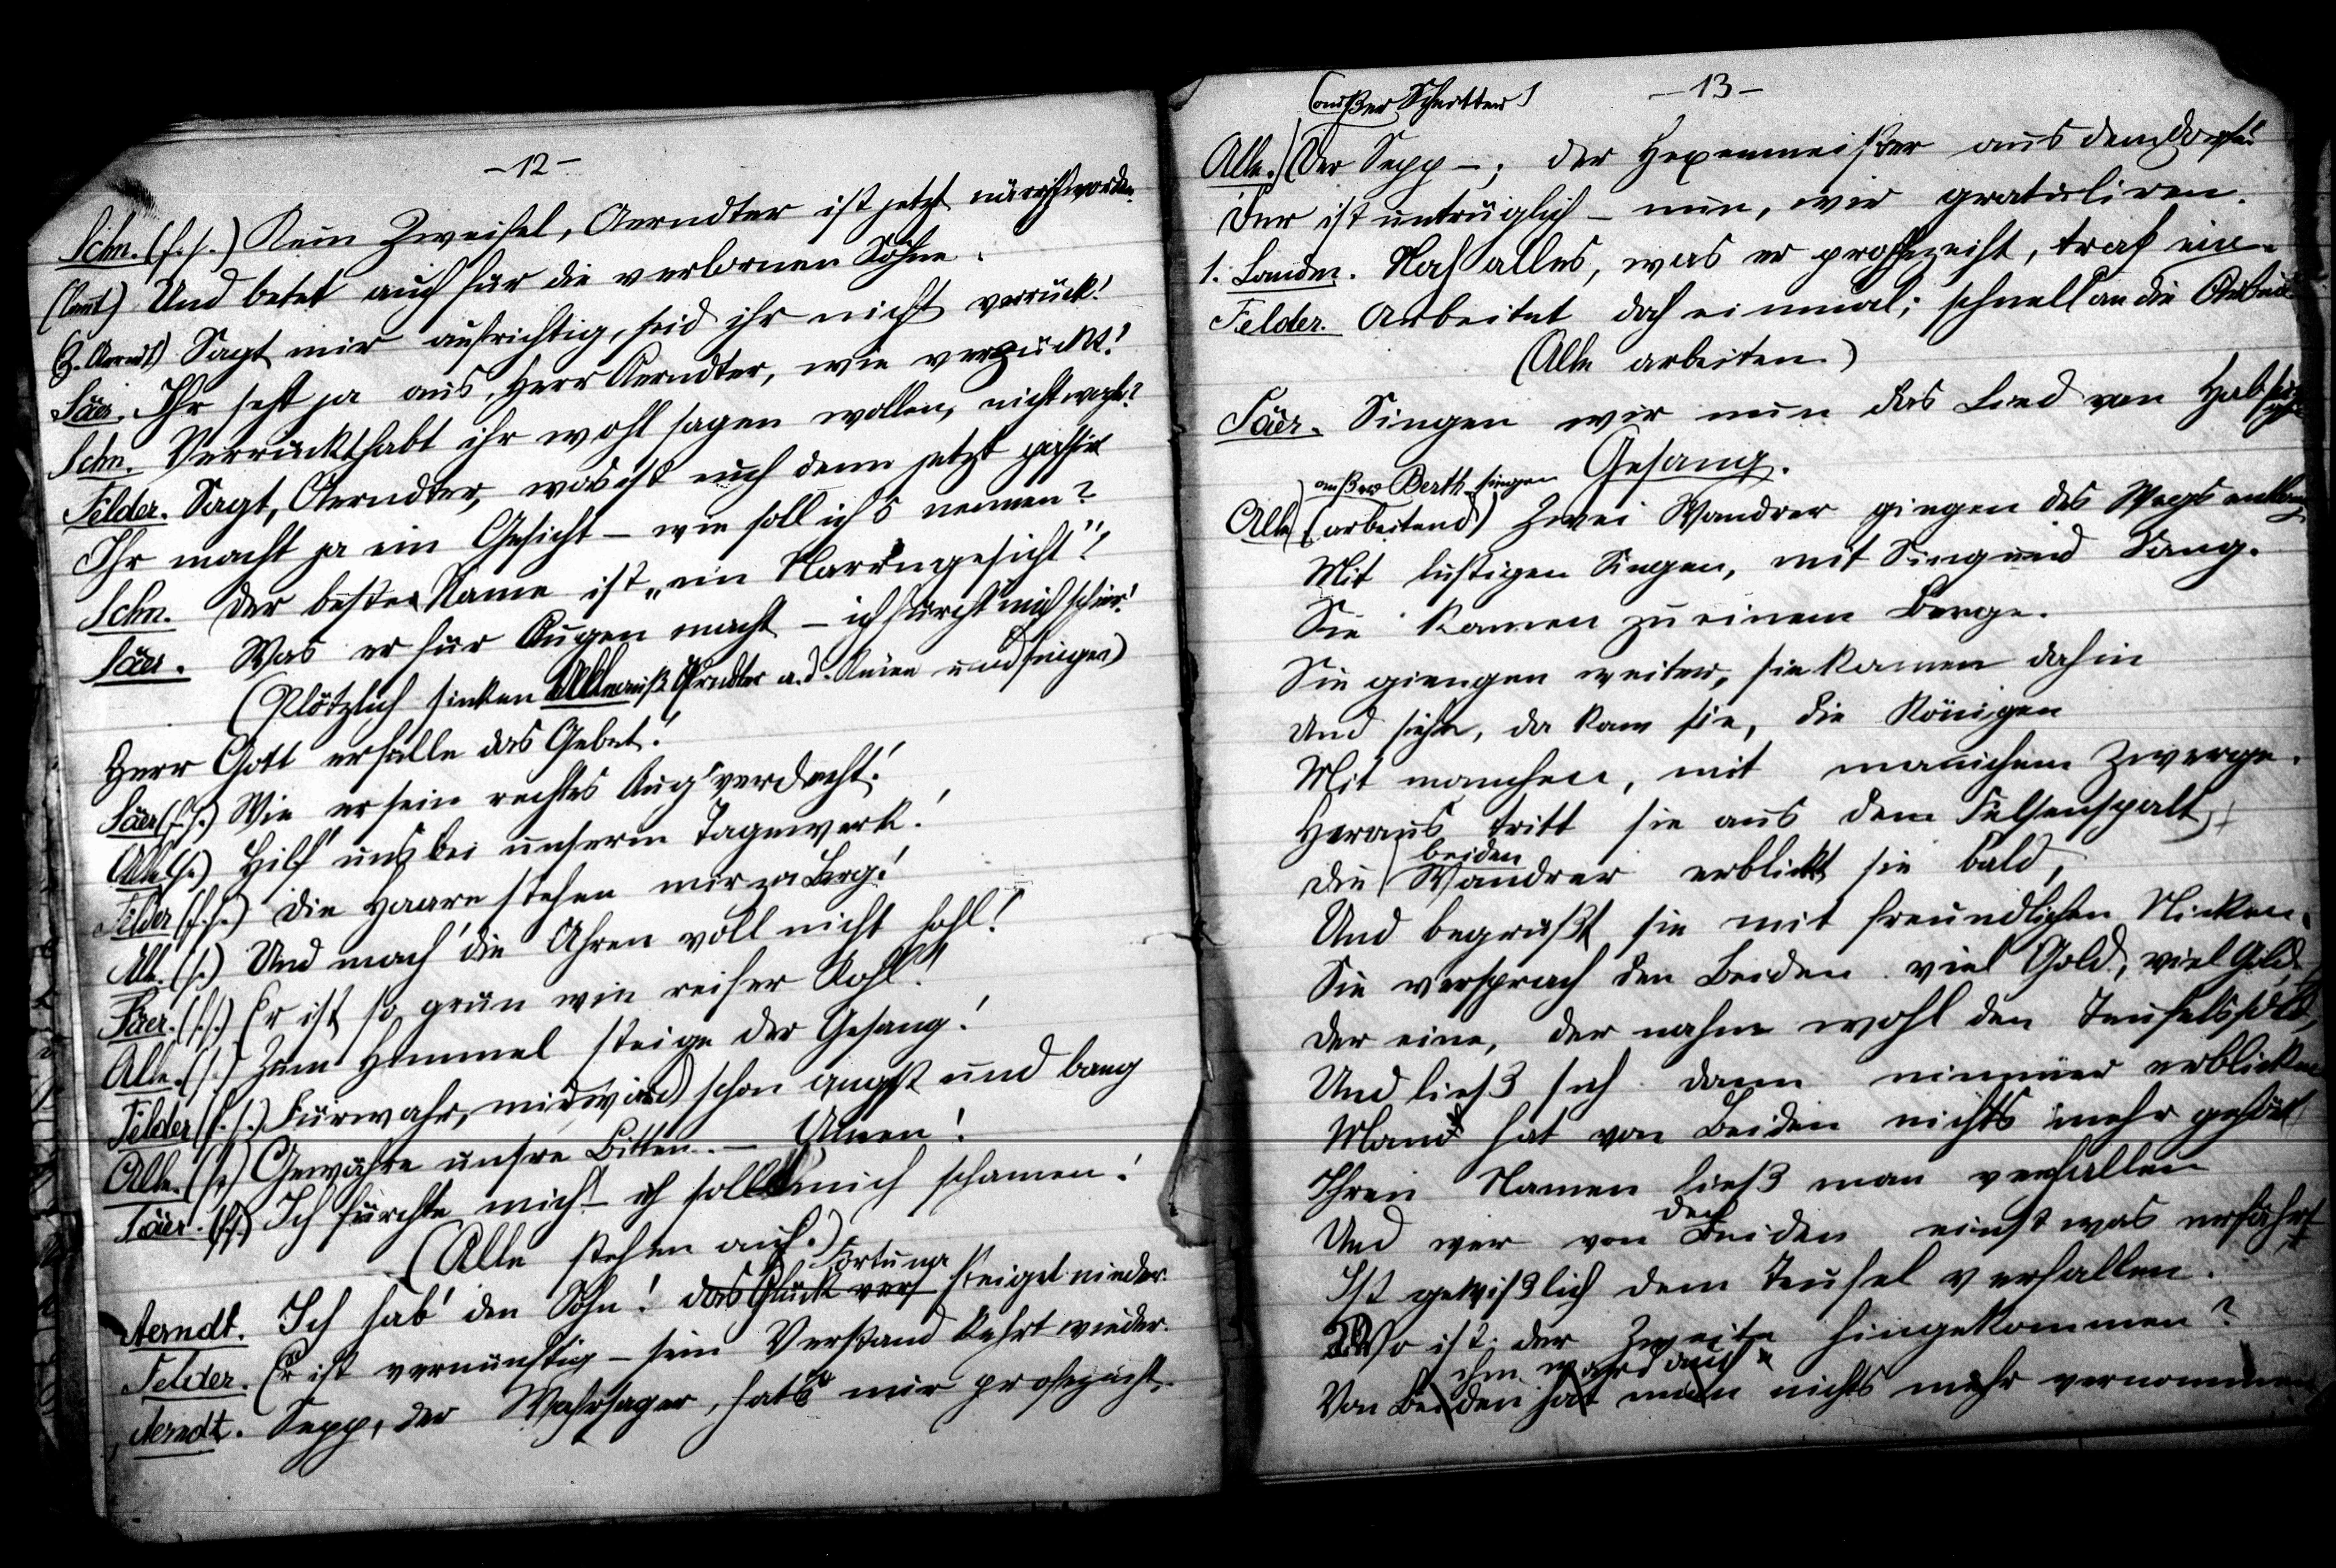 -12-
Schn. (f. s.) Kein Zweifel, Aerndter ist jetzt närrisch worden.
(laut) Und betet auch für die verlornen Söhne.
(z. Aerndt) Sagt mir aufrichtig, seid ihr nicht verrückt!
Säer. Ihr seht ja aus, Herr Aerndter, wie verzückt!
Schn. Verrückt habt ihr wohl sagen wollen, nicht wahr?
Felder. Sagt, Aerndter, was ist euch denn jetzt passirt
Ihr macht ja ein Gesicht – wie soll ich's nennen?
Schn. Der beste Name ist „ein Narrengesicht"!
Säer. Was er für Augen macht – ich fürcht' mich schier!
(Plötzlich sinken Alle auß. Ärndter a. d. Kniee und singen)
Herr Gott erfülle das Gebet!
Säer (f. s.) Wie er sein rechtes Aug' verdreht!
Alle (s.) Hilf' uns bei unserm Tagewerk!
Felder (f. s.) Die Haare stehen mir zu Berg!
Alle. (s.) Und mach' die Ähren voll nicht hohl!
Säer. (f. s.) Er ist so grün wie reifer Kohl!
Alle. (s.) Zum Himmel steige der Gesang!
Felder (f. s.) Fürwahr, mir wird schon angst und bang
Alle. (s.) Gewähre unsre Bitten. – Amen!
Säer. (f. s.) Ich fürchte mich – ich sollt mich schämen!
(Alle stehen auf.)
Fortuna
Aerndt. Ich hab' den Sohn! das Glück vers steiget nieder.
Felder. Er ist vernünftig – sein Verstand kehrt wieder.
Aerndt. Sepp, der Wahrsager, hat's mir profezeiht.
-13-
(außer Schnitter)
Alle. Der Sepp –; der Hexenmeister aus dem Dorfe!
Der ist untrüglich – nun, wir gratuliren.
1. Landm. Noch alles, was er profezeiht, traf ein.
Felder. Arbeitet doch einmal; schnell an die Arbeit
(Alle arbeiten.)
Säer. Singen wir nun das Lied von
Gesang.
außer Berth. singen
Alle (arbeitend) Zwei Wandrer giengen des Wegs entlang
Mit lustigen Singen, mit Sing und Sang.
Sie kamen zu einem Berge.
Sie giengen weiter, sie kamen dahin
Und siehe, da kam sie, die Königen
Mit manchen, mit manichem Zwerge.
Heraus tritt sie aus dem Felsenspalt,
beiden
Die Wandrer erblickt sie bald,
Und begrüßt sie mit freundlichen Nicken.
Sie versprach den Beiden viel Gold, viel Gold,
Der eine, der nahm wohl den Teufelssold,
Und ließ sich dann nimmer erblicken
Man hat von Beiden nichts mehr gehört
Ihren Namen ließ man verhallen
den
Und wer von Beiden einst was erfährt
Ist gewißlich dem Teufel verfallen.
Wo ist der Zweite hingekommen?
ihm ward auch
Von Beiden hat man nichts mehr vernommen